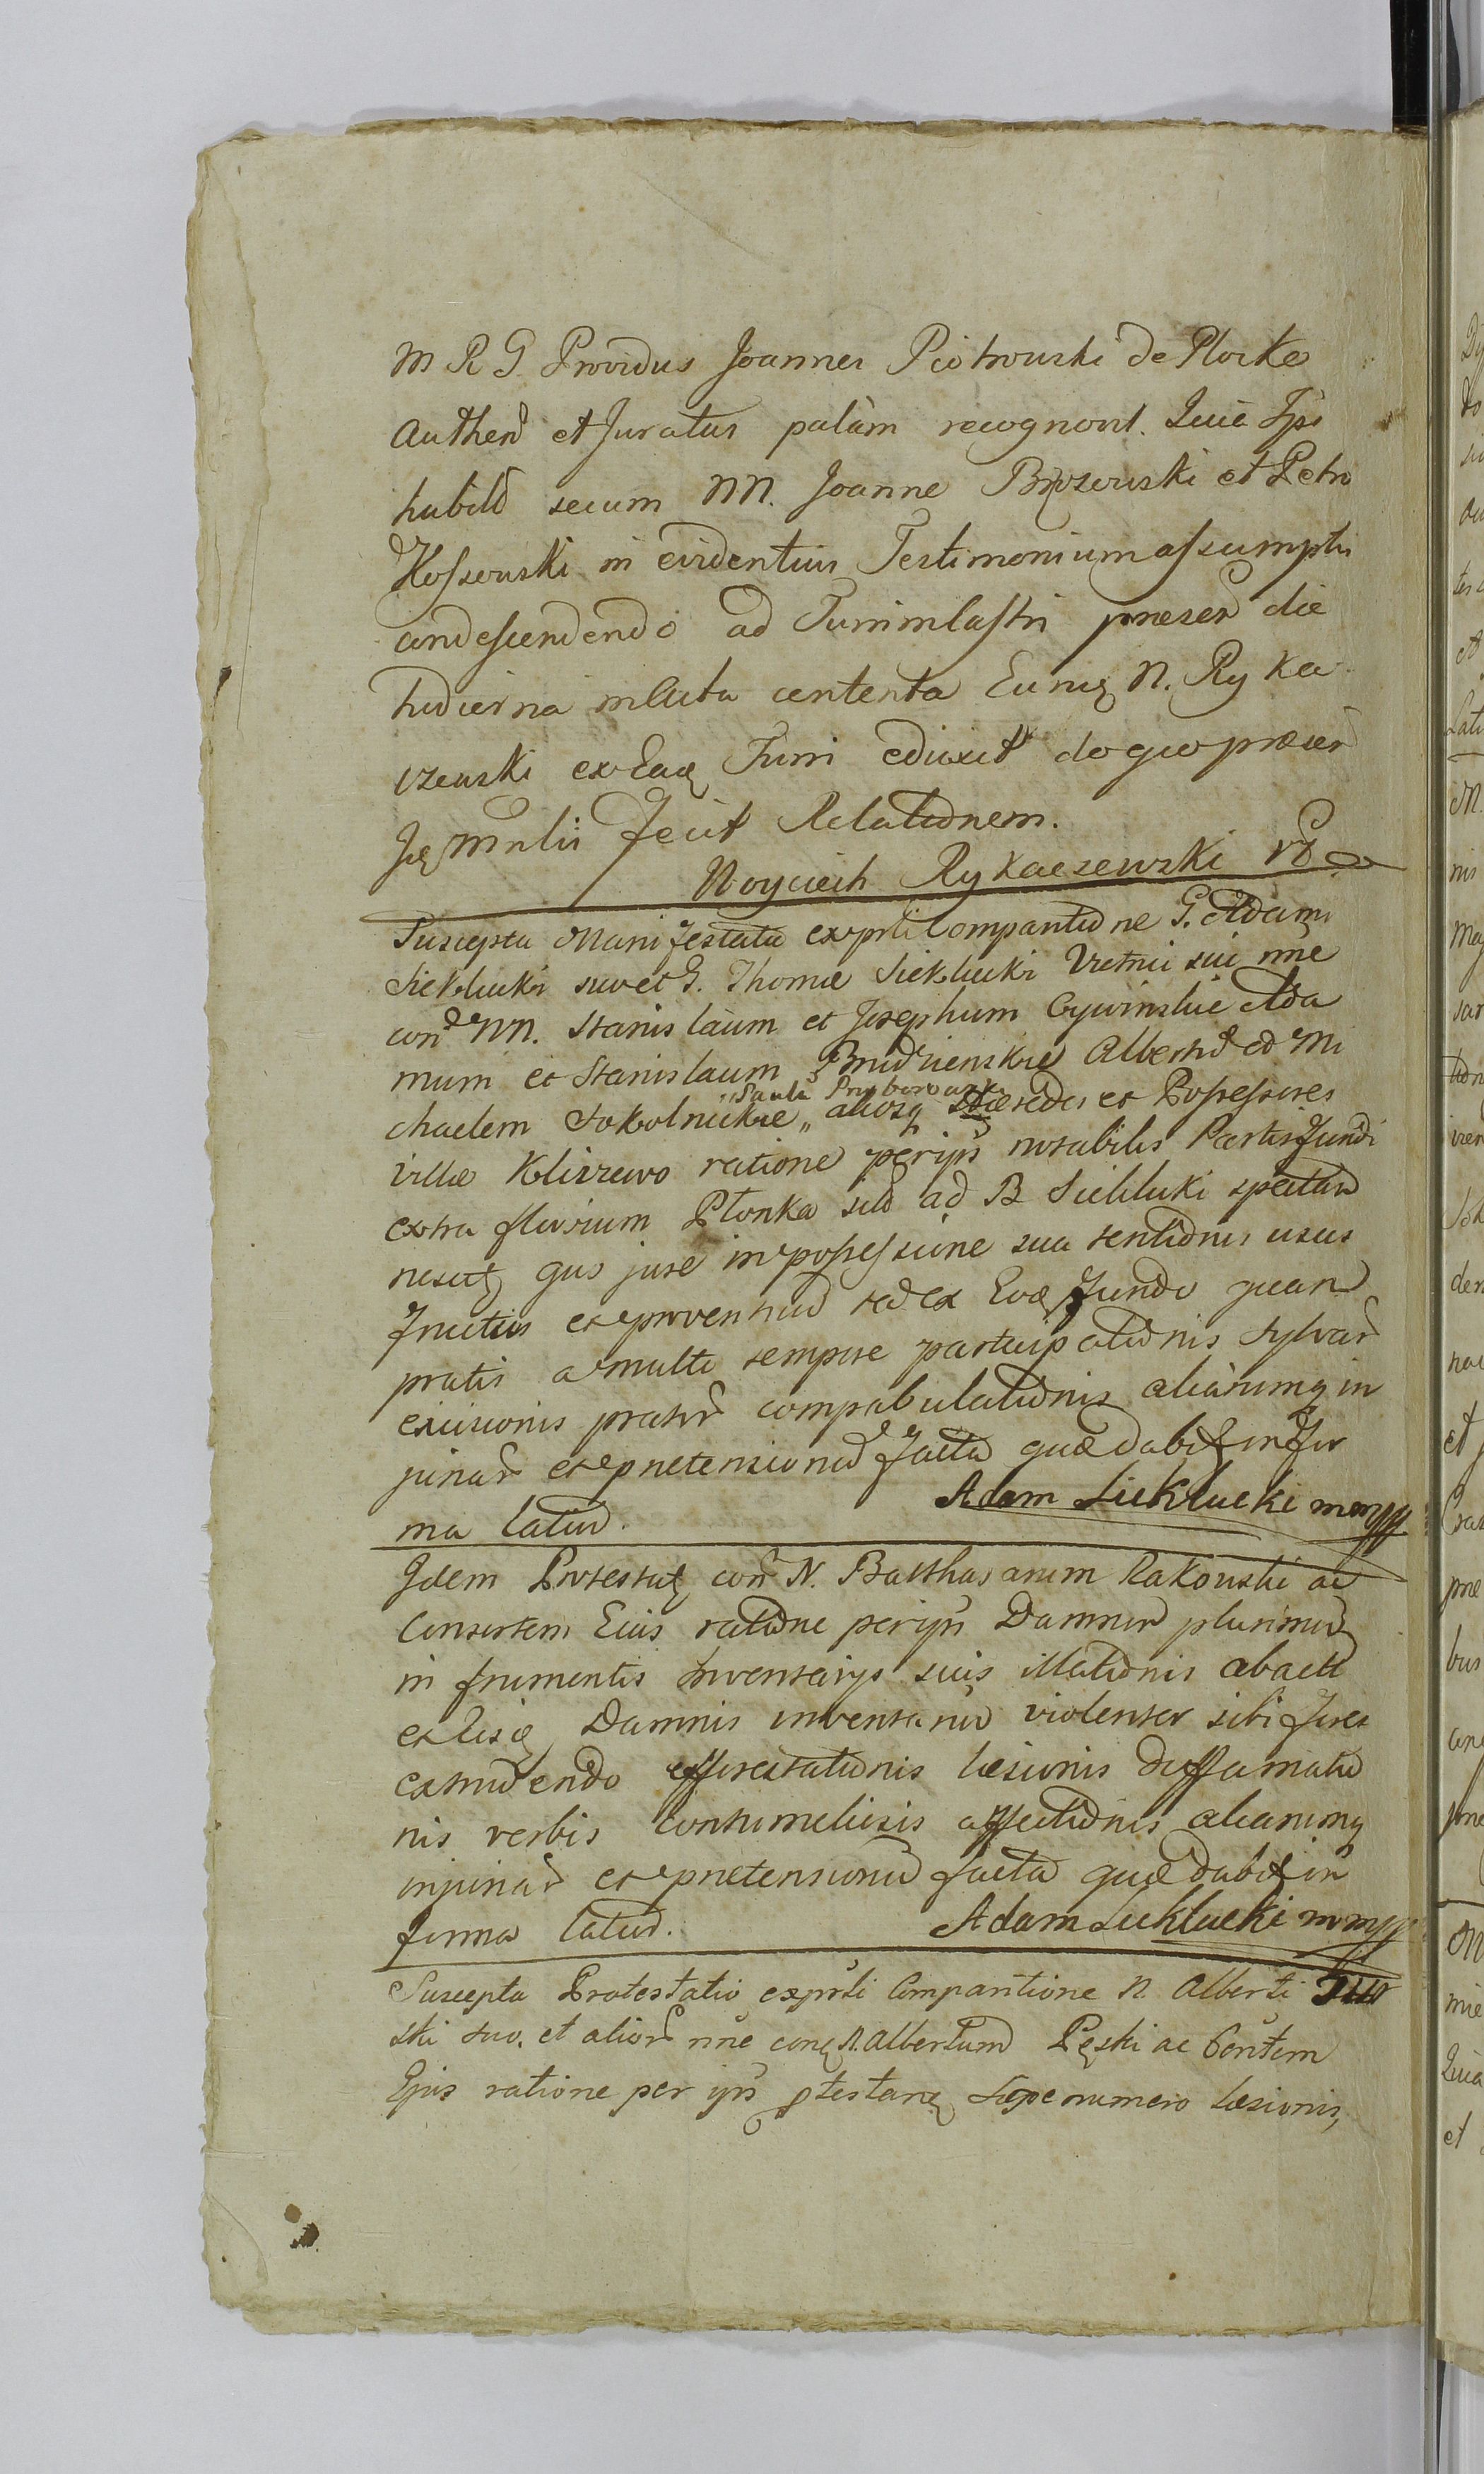 M R G. Providus Joannes Piotrowski de Plocko
Authen et Juratus palàm recognovit. Quia Ips
habits secum NN. Joanne Brzozowski et Petro
Kossowski in evidentius Testimonium assumptis
condescendendo ad Turim Castri praesen die
hodierna in acta contenta Eunq N. Ryka
czewski ex Eaq Turri eduxit de quo praesen
Jq Mnlis fecit Relationem.
Woyciech Rykaczewski
Suscepta Manifestatio ex prsti Comparitione G. Adami
Sieklucki suo et G. Thomæ Sieklucki Vretnii sui nne
con NN. Stanislaum et Josephum Cywinskie Ada
mum et Stanislaum Brudzienskie Albertum et Mi
"Paulu Przyborowski
chaelem Sokolnickie " aliosq Hæredes et Possessores
Villæ Klizzewo ratione per ipis notabilis Partis fundi
extra fluvium Płonka siti ad B Sieklucki spectan
nescitq quo jure in possessione sua tentionis usus
fructus et proventuum sed ex Eoq fundo quan
pratis a multo tempore participationis sylvar
excisionis prator compabulationis aliarumq in
juriar et prætensionum facta quæ dabit in for
ma latiu. Adam Sieklucki mpp
Idem Protestatq con N. Balthasarum Rakowski ac
Consortem Eius ratione per ipis Damnor plurimor
in frumentis Inventarys suis illationis abactt
ex Eisq Damnis inventariu violenter sibi fores
extrudendo effrestationis læsionis diffamatio
nis verbis contumeliosis affectionis aliarumq
injuriar et prætensionum facta quæ dabit in
forma latiu. Adam Sieklucki mpp
Suscepta Protestatio ex prsti Comparitione N. Alberti
ski suo. et alior nne conq N. Albertum Pęski ac Contem
Ejus ratione per ips ptestanq sæpe numero læsionis,